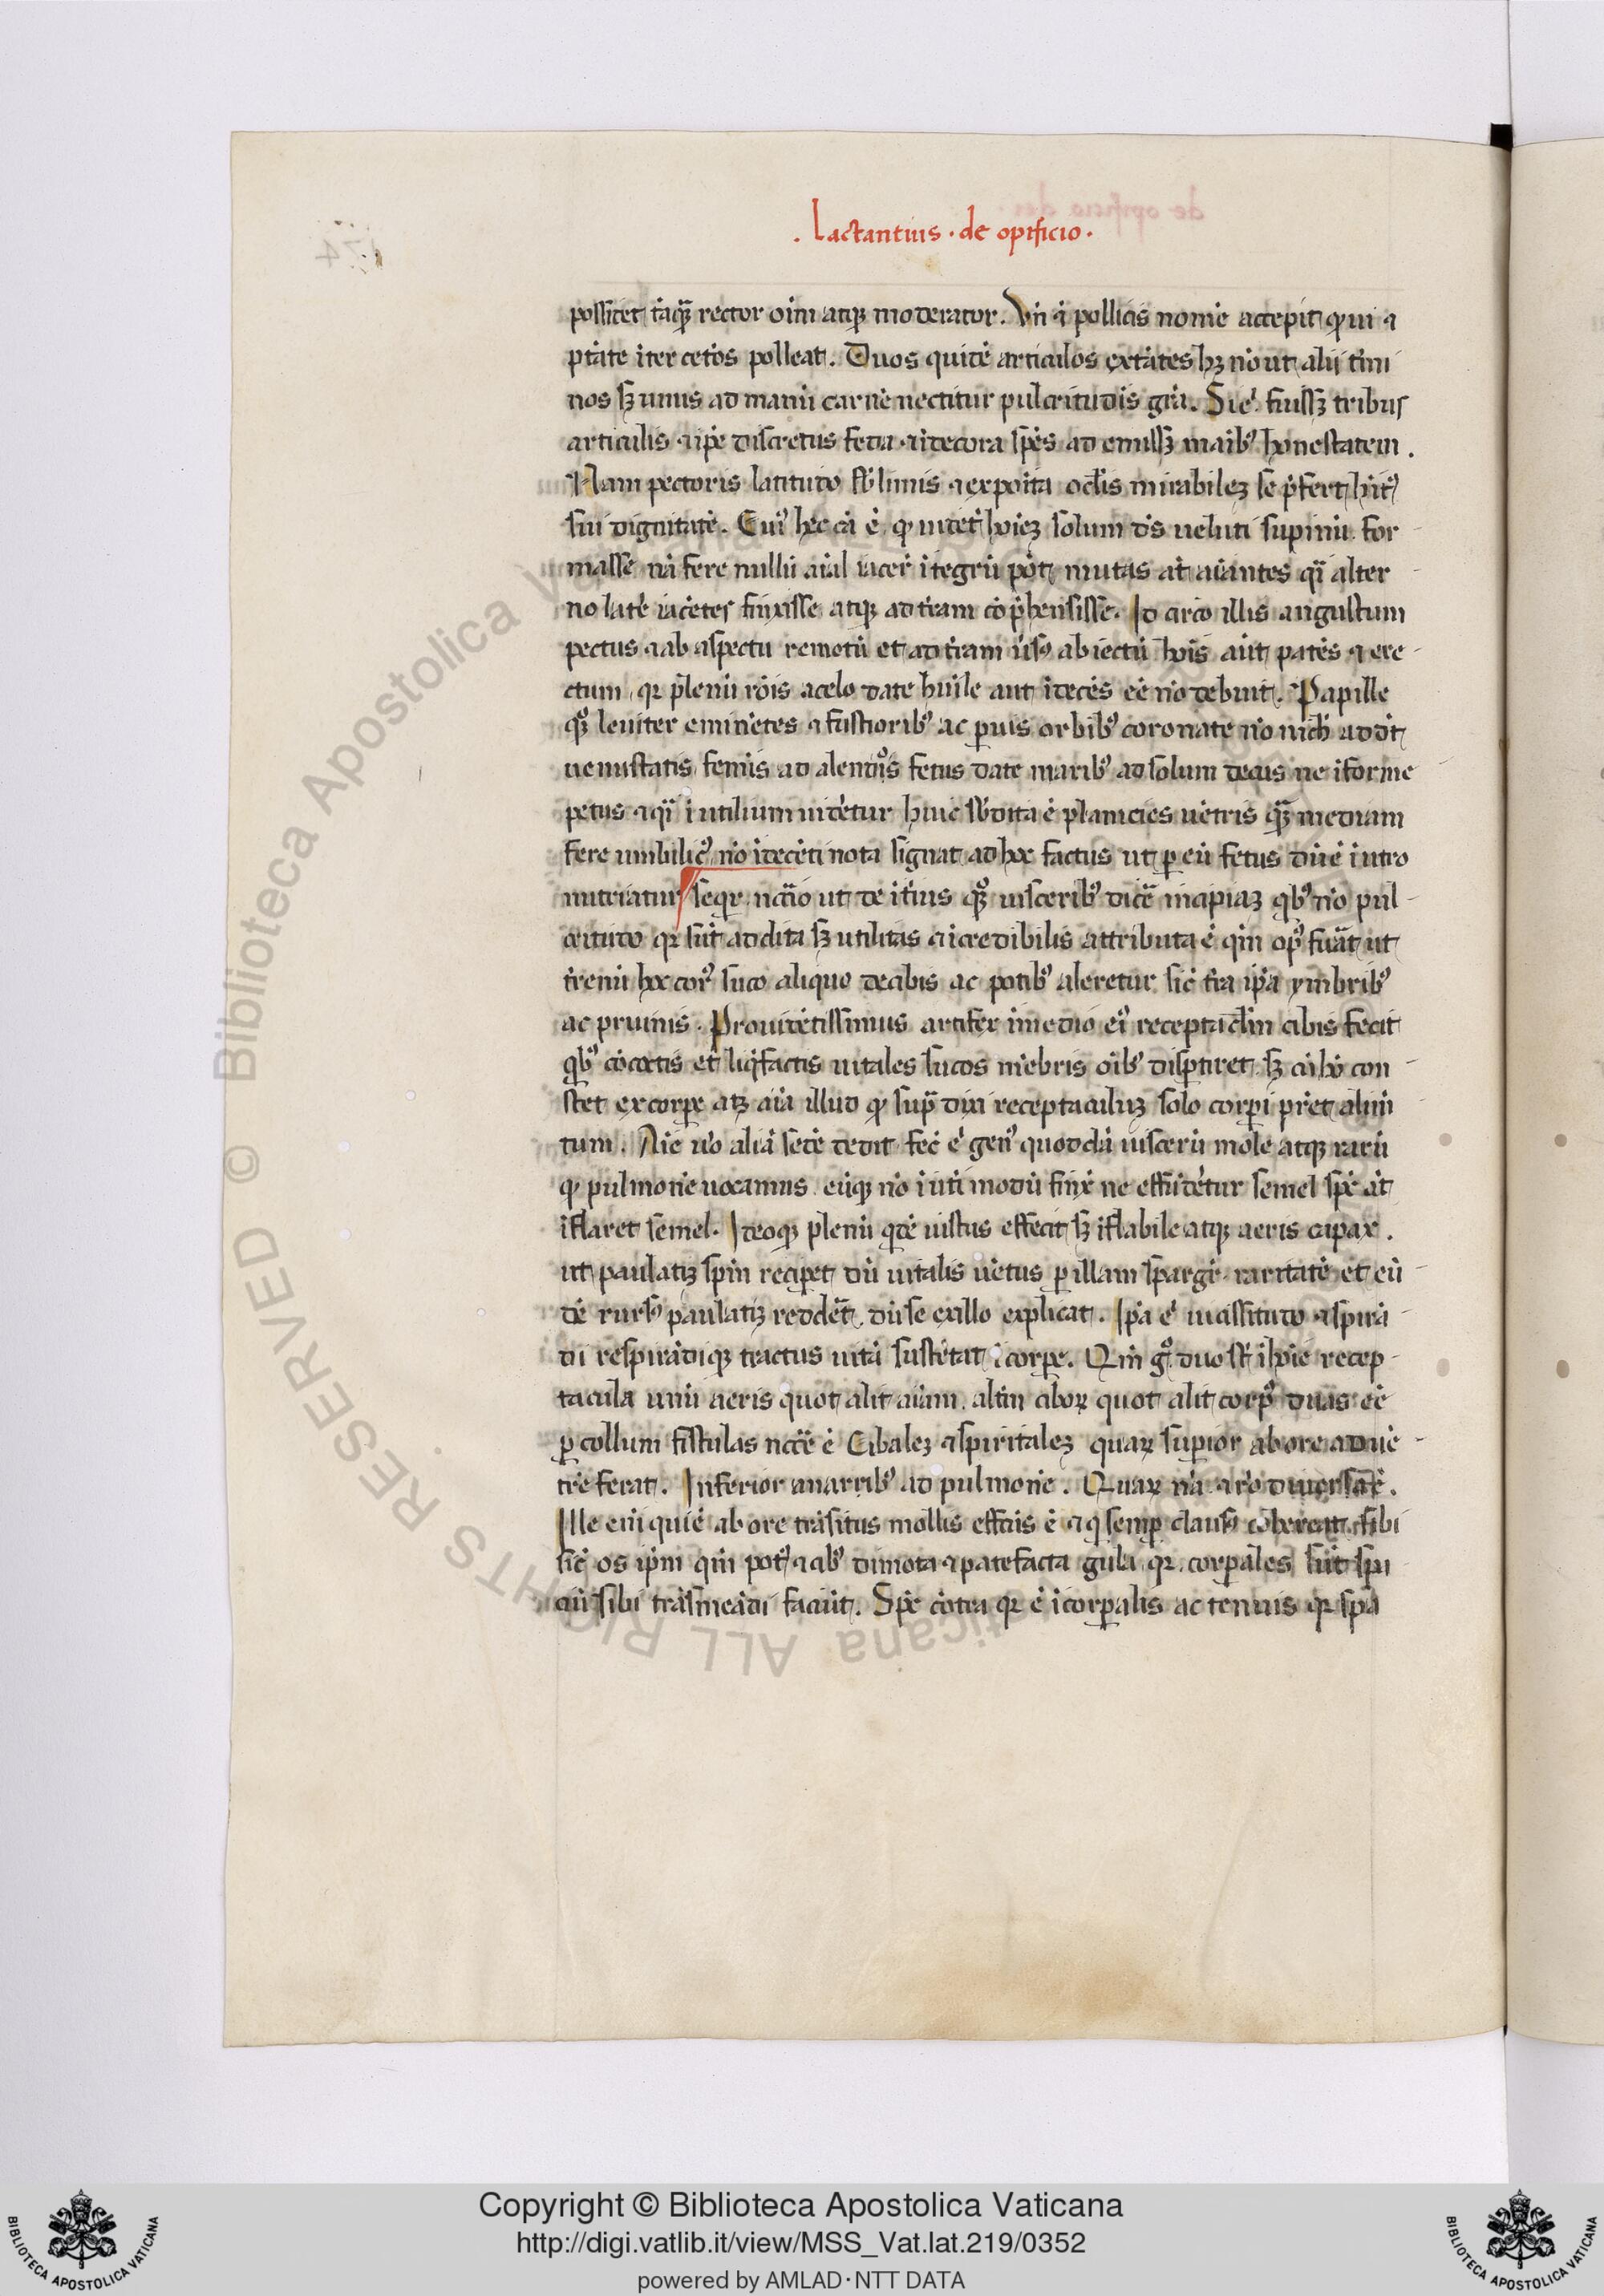 . Lactantius · de opificio ·
possidet tāq̃ꝫ rector oīm atqꝫ moderator. Vn̄ ⁊ pollicis nomē accepit ꝙ ui ⁊
ptāte īter cetōs polleat. Duos quidē articulos extātes hꝫ nō ut alii
nos sꝫ unus ad manū carne nectitur pulcritudīs grā. Si .n. fuissꝫ tribus
articulis ⁊ ip̄e discretus feda ⁊ īdecora sp̄es ademissꝫ maībꝰ honestatem .
Nam pectoris latitudo sb̄limis ⁊ exposita oclis mirabileꝫ se p̄fert
sui dignitatē. Cuiꝰ hec cā ē ꝙ uidet̄ hoīeꝫ solum dˢ ueluti supinū for
masse nā fere nullū aīal iacere ītegrū pōt mutas at aīantes q̄i alter
no latē iacētes finxisse atqꝫ ad trām cōp̄hensisse. Id circo illis angustum
pectus ⁊ ab aspectu remotū et ad terram ūsꝰ abiectū hoīs aūt patēs ⁊ ere
ctum qꝛ plenū rōis a celo date huīle aut īdecēs eē nō debuit. Papille
qꝫ leuiter eminētes ⁊ fuscioribꝰ ac ꝑuis orbibꝰ coronate nō nich̄ addūt
uenustatis femīs ad alendōs fetus date maribꝰ ad solum decus ne īforme
petus ⁊ q̄i īutilium uidētur huic sb̄dita ē planicies uētris q̄ꝫ mediam
fere umbilicꝰ nō īdecēti nota signat ad hoc factus ut ꝑ eū fetus dū ē ītro
nutriatur seqr nccīo ut de ītīus qꝫ uisceribꝰ dicē incipiaꝫ qbꝰ nō pul
critudo qꝛ sūt addita sꝫ utilitas ⁊ īcredibilis attributa ē qm̄ opꝰ fuāt ut
trēnū hoc corꝰ suco aliquo de cibis ac potibꝰ aleretur sic̄ tra ip̄a ymbribꝰ
ac pruinis . Prouidētissimus artifex ī medio eiꝰ receptaclm̄ cibis fecit
qbꝰ cōcotis et liq̄factis uitales sucos mēbris oībꝰ disꝑtiret sꝫ cū hō con
stet ex corꝑe atqꝫ aīa illud ꝙ sup̄ dixi receptaculuꝫ solo corꝑi p̄et alim̄
tum . Aīe ūo aliā sedē dedit fec̄ .n. genꝰ quoddā uiscerū mole atqꝫ rarū
ꝙ pulmonē uocamus eūqꝫ nō ī utī modū finxit ne effūdētur semel sp̄c at
īflaret semel. Ideoqꝫ plenū qdē uiscus effecit sꝫ īflabile atqꝫ aeris capax .
ut paulatiꝫ sp̄m recipet dū uitalis uētus ꝑ illam spargit raritatē et eū
dē rursꝰ paulatiꝫ reddet̄ dū se ex illo explicat . Ip̄a .n. uicissitudo ⁊ spirā
di respirādiqꝫ tractus uitā sustētat ī corꝑe. Qm̄ gͦ duo st̄ ī hoīe recep
tacula unū aeris quot alit aīam altm̄ ciboꝝ quot alit corpꝰ duas eē
ꝑ collum fistulas nccē ē Cibaleꝫ ⁊ spiritaleꝫ quaꝝ suꝑior ab ore ad uē
trē ferat . Inferior a narribꝰ ad pulmonē . Quaꝝ nā ⁊ rō diuersa ē .
Ille enī qui ē ab ore trāsitus mollis effectus ē ⁊ q semꝑ clausꝰ cohereat sibi
sic̄ os ip̄m qm̄ potꝰ ⁊ cibꝰ dimota ⁊ patefacta gula qꝛ corꝑales sūt spa
ciū sibi trāsmeādi faciūt. Sp̄c cōtra qꝛ ē īcorꝑalis ac tenuis qꝛ spa
Copyright © Biblioteca Apostolica Vaticana
http://digi.vatlib.it/view/MSS_Vat.lat.219/0352
powered by AMLAD·NTT DATA
BIBLIOTECA APOSTOLICA VATICANA
BIBLIOTECA APOSTOLICA VATICANA
© Biblioteca Apostolica Vaticana ALL RIGHTS RESERVED